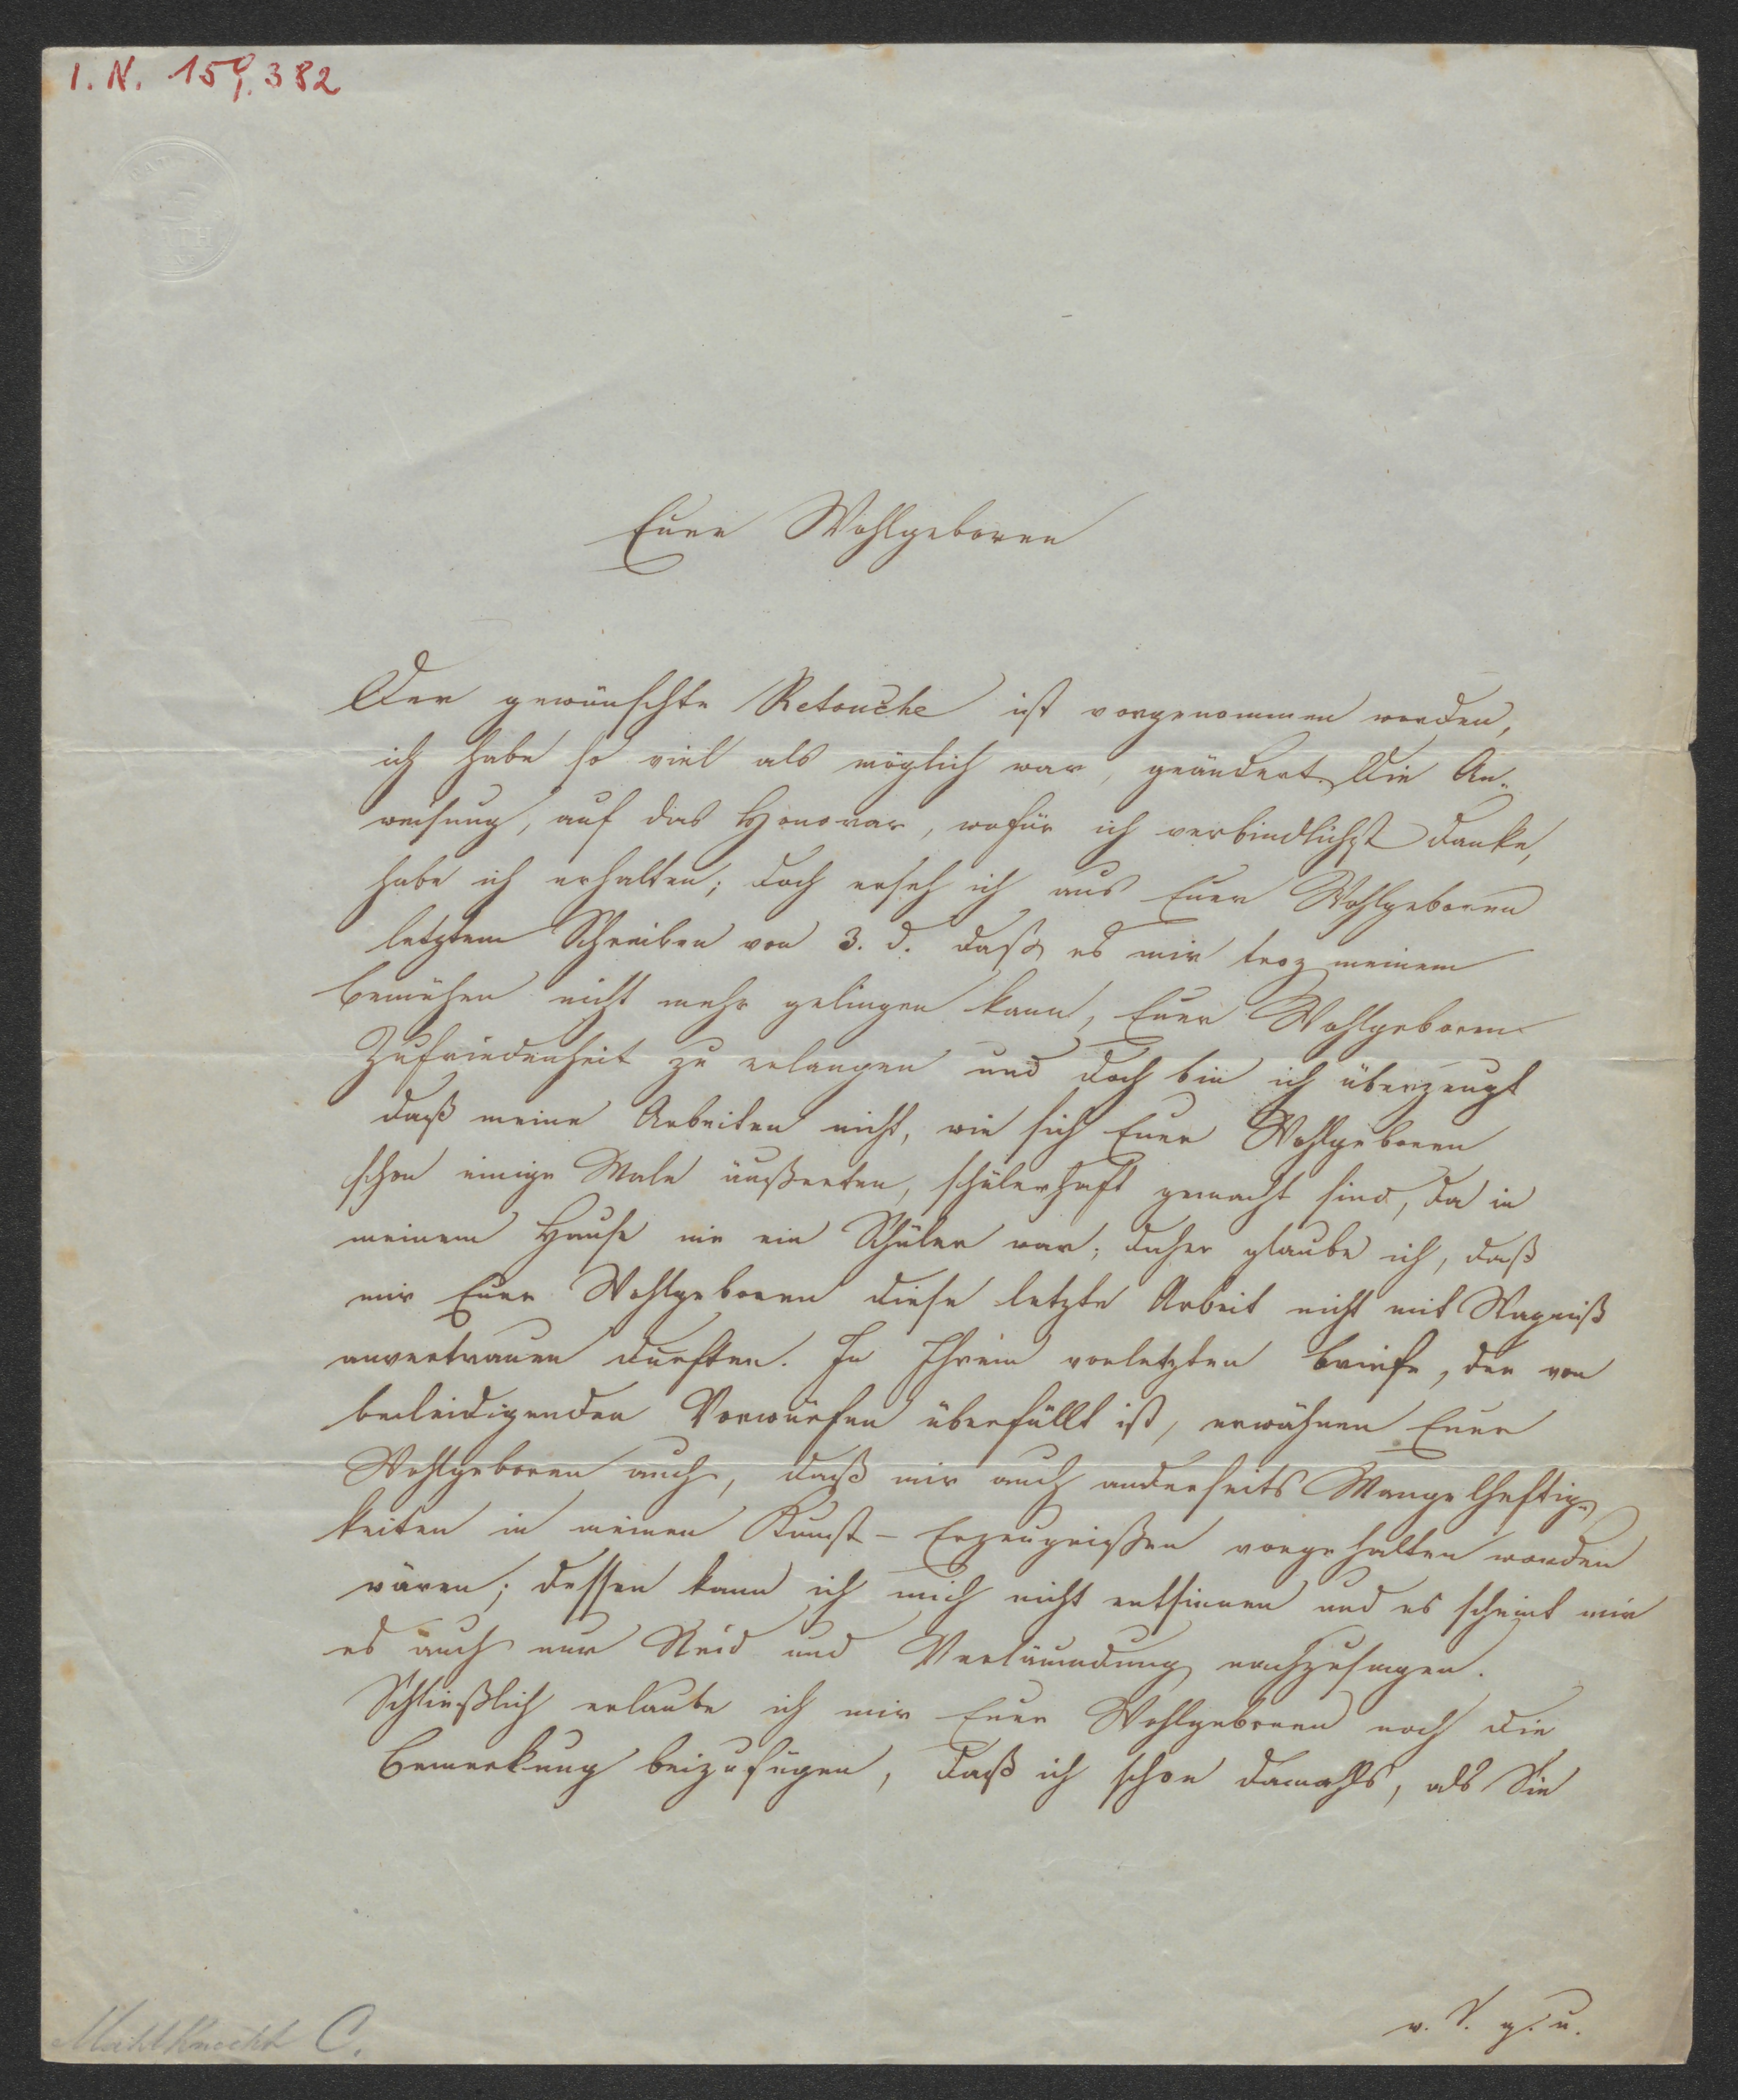 I. N. 159.382
Euer Wohlgeboren
Der gewünschte Retouche ist vorgenommen worden,
ich habe so viel als möglich war, geändert. Die An-
weisung, auf das Honorar, wofür ich verbindlichst danke,
habe ich erhalten; doch erseh ich aus Euer Wohlgeboren
letztem Schreiben von 3. d. daß es mir troz meinem
Bemühen nicht mehr gelingen kann, Euer Wohlgeboren
Zufriedenheit zu erlangen und doch bin ich überzeugt
daß meine Arbeiten nicht, wie sich Euer Wohlgeboren
schon einige Male äußerten, schülerhaft gemacht sind, da in
meinem Hause nie ein Schüler war; daher glaube ich, daß
mir Euer Wohlgeboren diese letzte Arbeit nicht mit Wagniß
anvertrauen durften. In Ihrem vorletzten Briefe, der von
beleidigenden Vorwürfen überfüllt ist, erwähnen Euer
Wohlgeboren auch, daß mir auch anderseits Mangelhaftig-
keiten in meinen Kunst-Erzeugnißen vorgehalten worden
wären; dessen kann ich mich nicht entsinnen und es scheint mir
es auch nur Neid und Verläumdung nachzusagen.
Schließlich erlaube ich mir Euer Wohlgeboren noch die
Bemerkung beizufügen, daß ich schon damahls, als Sie
v. S. g. u.
Mahlknecht C.